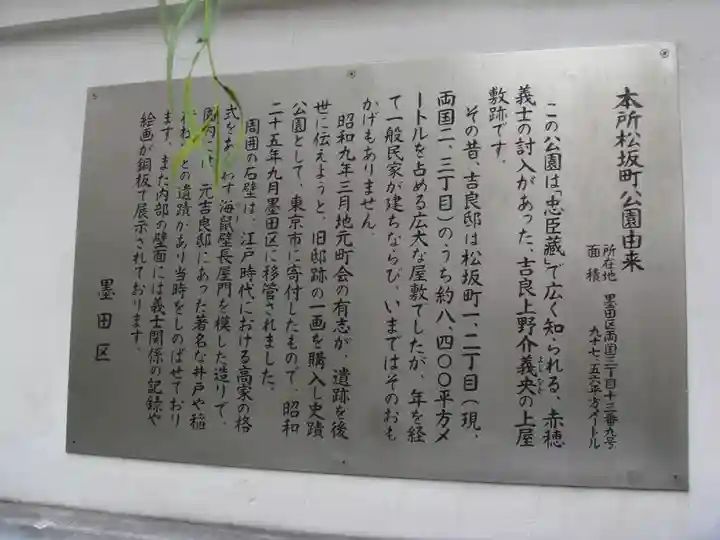 本所松坂町公園由来
所在地 墨田区両国三丁目十三番九号
面積 九十七・五六平方メートル
この公園は「忠臣蔵」で広く知られる、赤穂
義士の討入があった、吉良上野介義央の上屋
よしなか
敷跡です。
その昔、吉良邸は松坂町一、二丁目(現、
両国二、三丁目)のうち約八、四〇〇平方メ
ートルを占める広大な屋敷でしたが、年を経
て一般民家が建ちならび、いまではそのおも
かげもありません。
昭和九年三月地元町会の有志が、遺跡を後
世に伝えようと、旧邸跡の一画を購入し史蹟
公園として、東京市に寄付したもので、昭和
二十五年九月墨田区に移管されました。
周囲の石壁は、江戸時代における高家の格
式をあらわす海鼠壁長屋門を模した造りで、
園内には、元吉良邸にあった著名な井戸や稲
などの遺蹟があり当時をしのばせており
ます。また内部の壁面には義士関係の記録や
絵画が銅板で展示されております。
墨田区